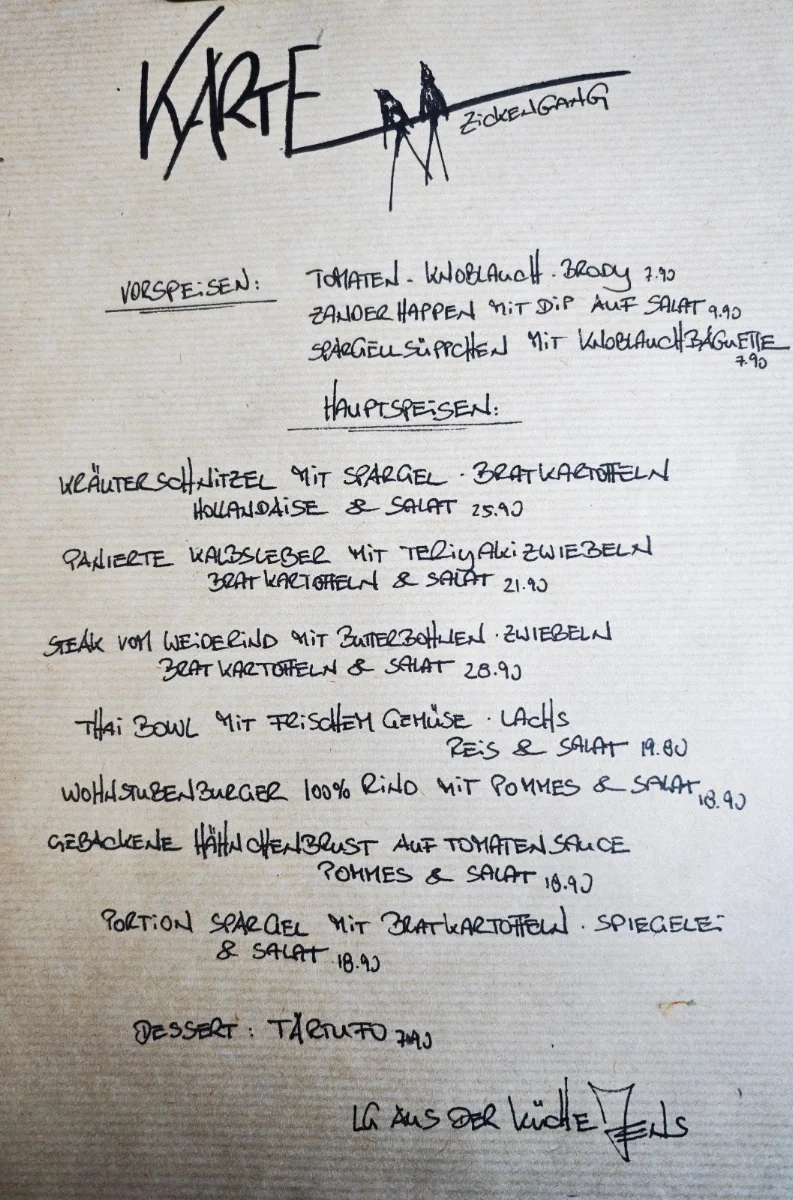 KARTE
ZiCKENGANG
VORSPEiSEN:
TOMATEN - KNOBLAUCH . BRODY 7.90
ZANDER HAPPEN MiT DiP AUF SALAT 9.90
SPARGELLSÜPPCHEN MiT KNOBLAUCHBAGUETTE
7.90
HAUPTSPEiSEN:
KRÄUTERSCHNiTZEL MiT SPARGEL . BRATKARTOFFELN
HOLLANDAiSE & SALAT 25.90
PANIERTE KALBSLEBER MiT TERiYAKiZWiEBELN
BRATKARTOFFELN & SALAT 21.90
STEAK VOM WEiDERiND MiT BUTTERBOHNEN . ZWIEBELN
BRATKARTOFFELN & SALAT 28.90
THAi BOWL MiT FRiSCHEM GEMÜSE . LACHS
REiS & SALAT 19.80
WOHNSTUBENBURGER 100% RiND MiT POMMES & SALAT 18.90
GEBACKENE HÄHNCHENBRUST AUF TOMATENSAUCE
POMMES & SALAT 18.90
PORTiON SPARGEL MiT BRATKARTOFFELN . SPIEGELEi
& SALAT 18.90
DESSERT: TARTUFO 7.90
LG AUS DER KÜCHE JENS